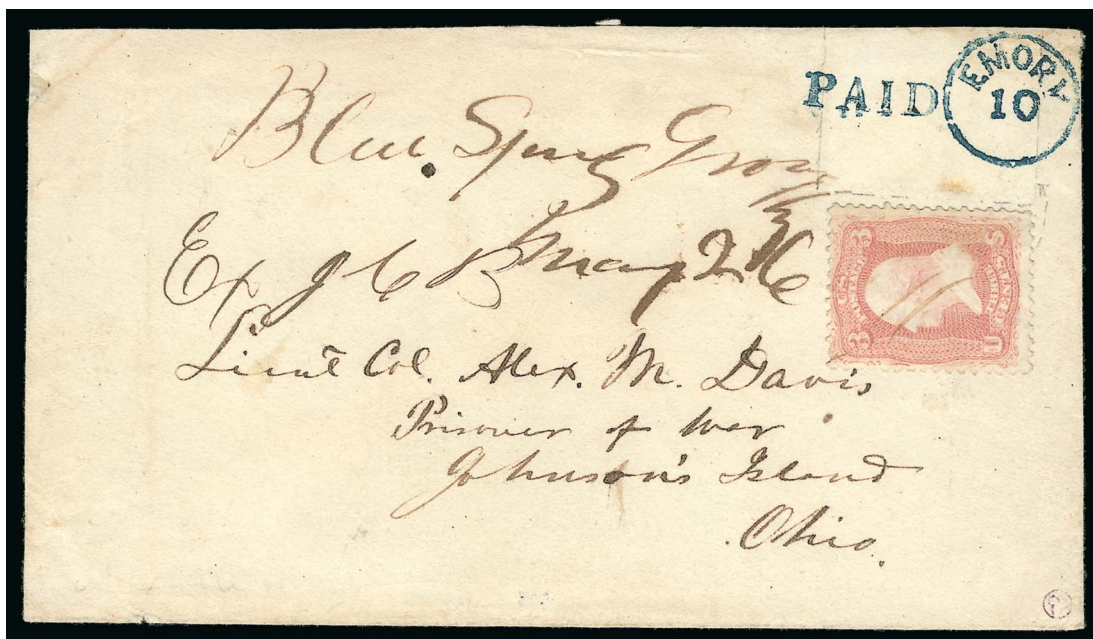 PAID EMORY 10
Blue Spring Grove
Ex J C B May 2
Lieut Col. Alex. M. Davis
Prisoner of War
Johnson's Island
Ohio.
3 3